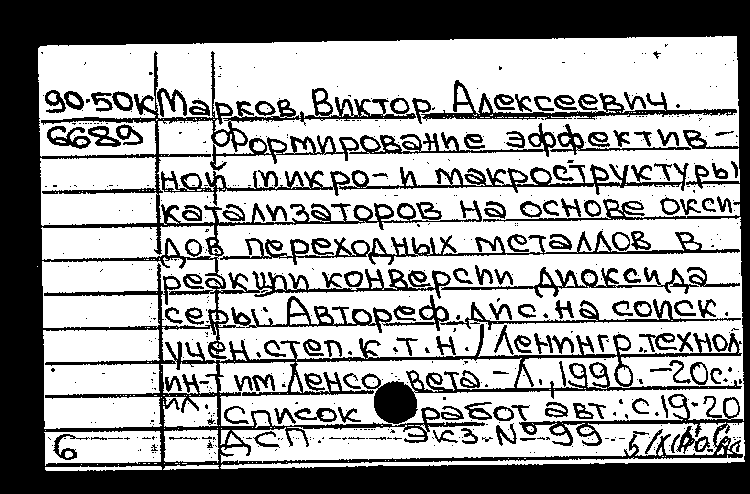 90-50К Марков, Виктор Алексеевич.
6689 Формирование эффектив-
ной микро- и макроструктуры
катализаторов на основе окси-
дов переходных металлов в
реакции конверсии диоксида
серы: Автореф. дис. на соиск.
учен. степ. к. т. н. / Ленингр. технол
ин-т им. Ленсовета. - Л., 1990. - 20с.:
ил.
Список работ авт.: с. 19-20
6 ДСП. Экз. № 99